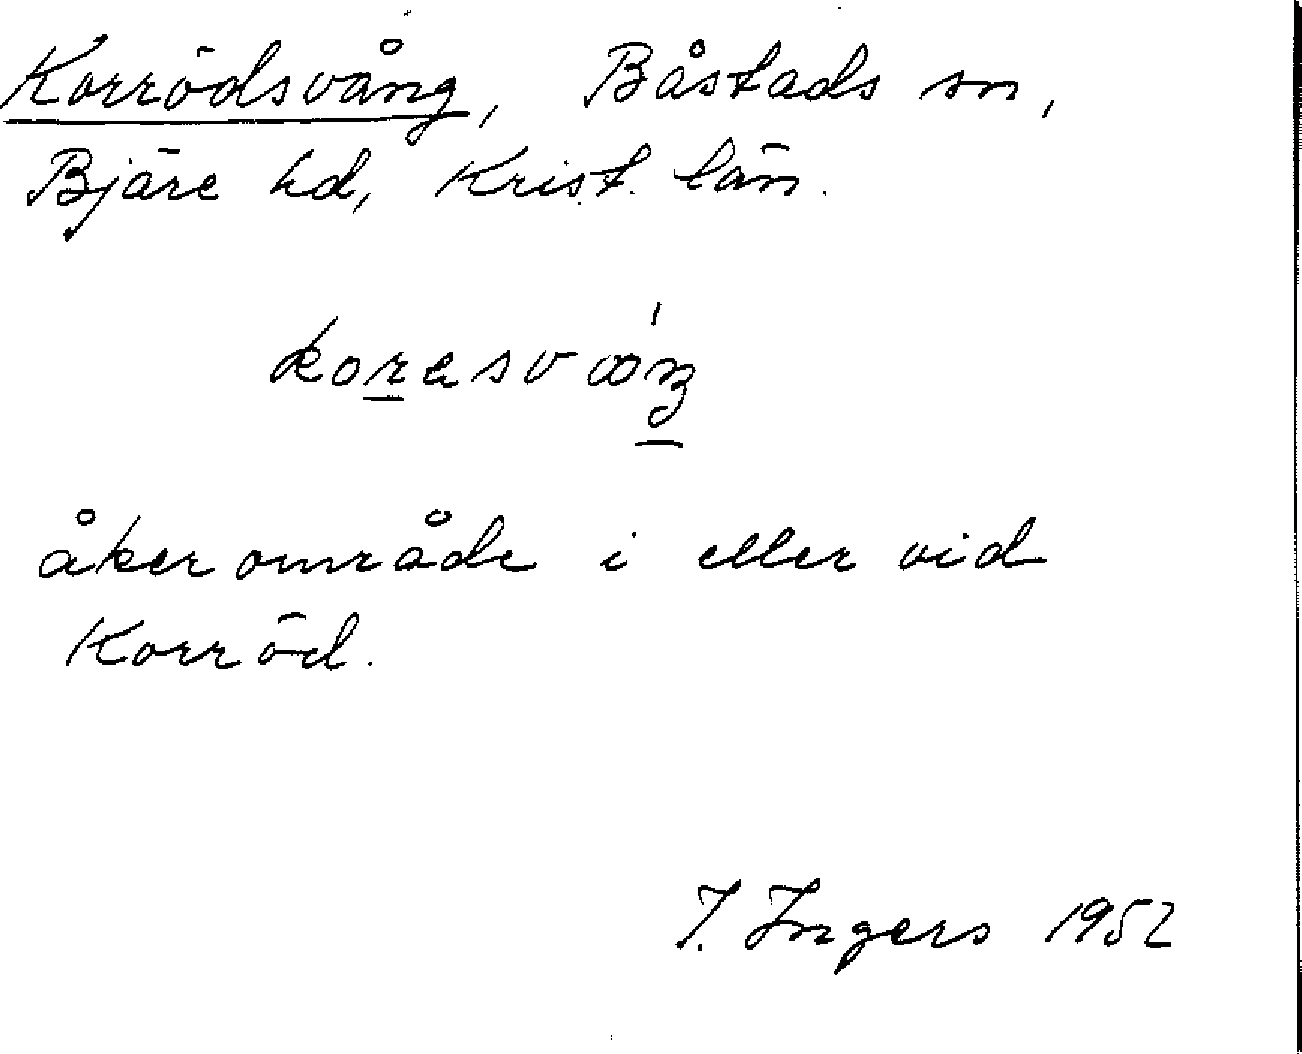 Korrödsvång, Båstads sn,
Bjäre hd, Krist. län.
åkerområde i eller vid
Korröd.
I. Ingers 1952